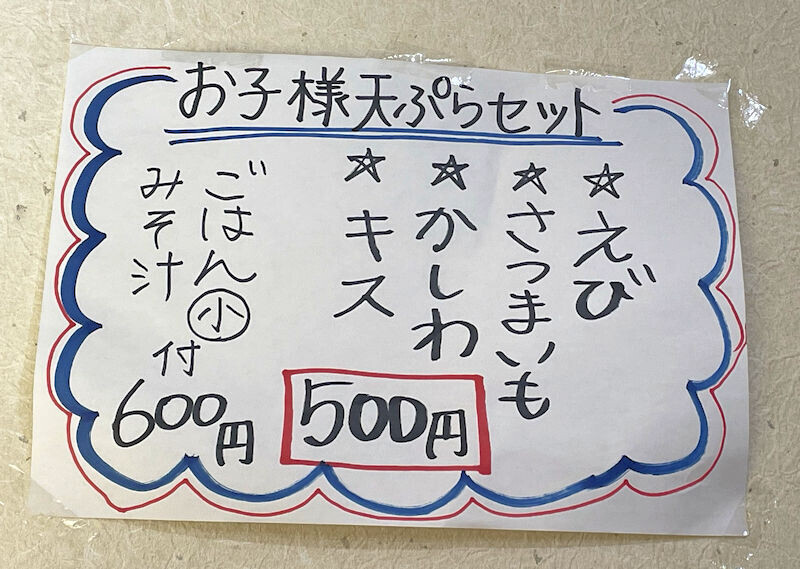 お子様天ぷらセット
☆えび
☆さつまいも
☆かしわ
☆キス
500円
ごはん㊥
みそ汁
付
600円